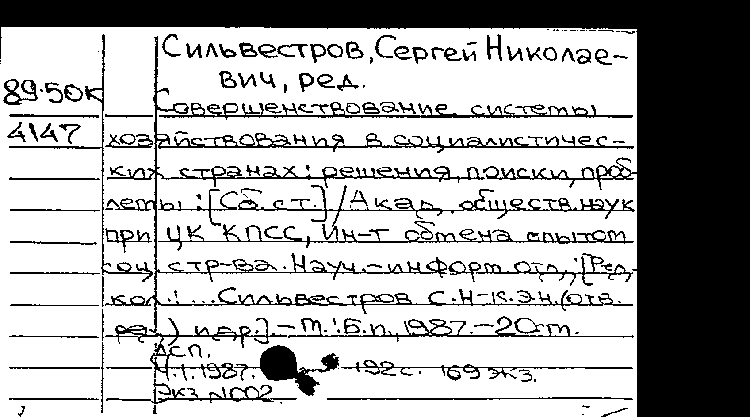 Сильвестров, Сергей Николае-
вич, ред.
89-50к
Совершенствование системы
4147
хозяйствования в социалистичес-
ких странах: решения, поиски, проб-
лемы : [Сб. ст.] / Акад. обществ. наук
при ЦК КПСС, Ин-т обмена опытом
соц. стр-ва. Науч.-информ. отд.; [Ред.
кол.: ... Сильвестров С.Н.-к.э.н. (отв.
ред.) и др.]. - М. : Б.и., 1987. - 20 см.
ДСП.
Ч.1. 1987. 192 с. 169 экз.
Экз. N 002